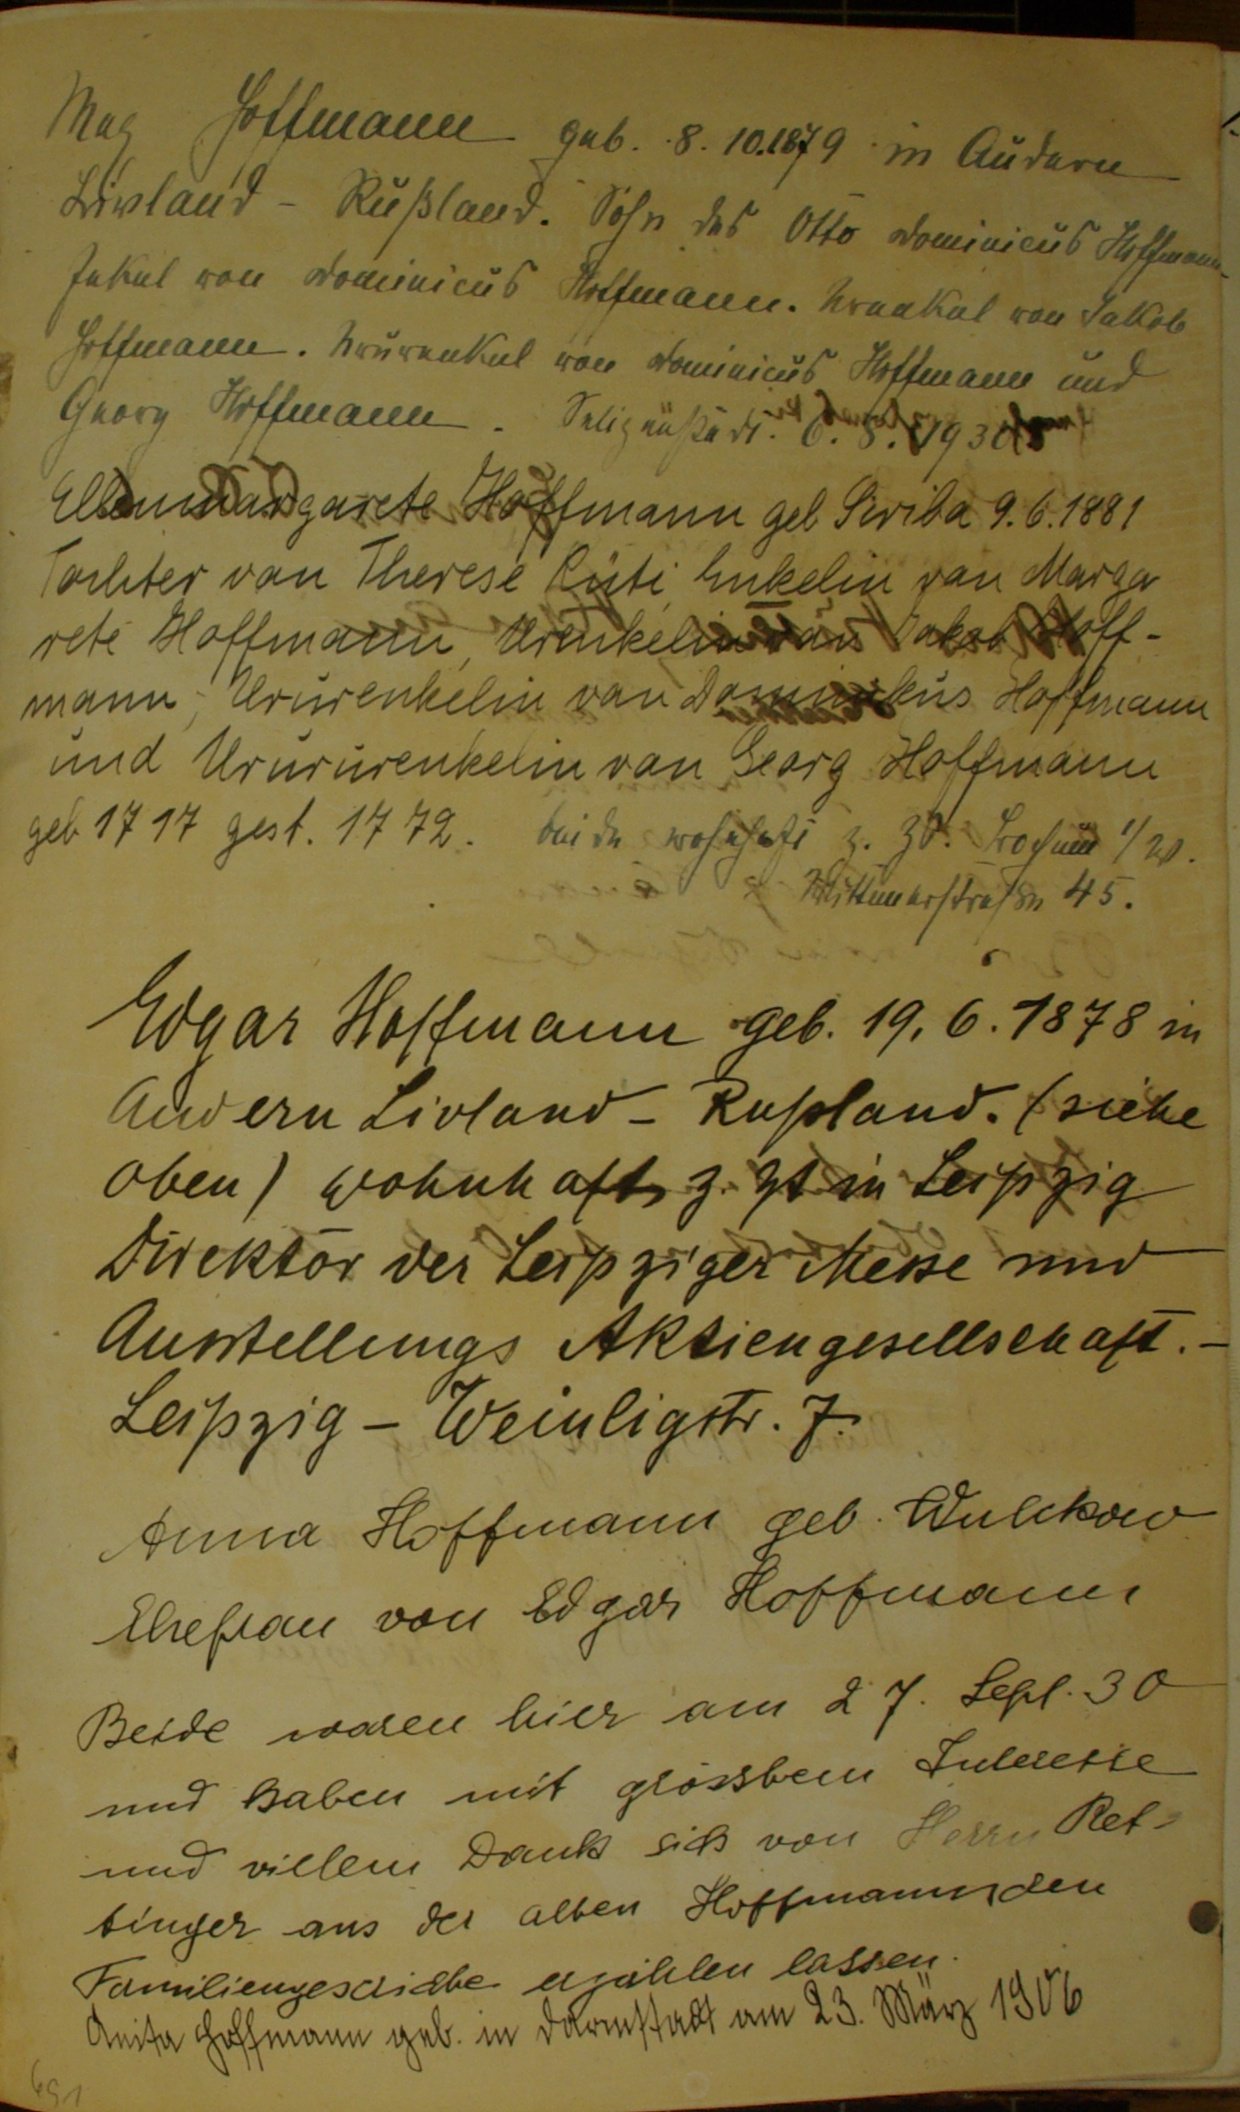 Max Hoffmann geb. 8.10.1879 in Audern
Livland - Rußland. Sohn des Otto Dominicus Hoffmann
Enkel von Dominicus Hoffmann. Urenkel von Jakob
Hoffmann. Ururenkel von Dominicus Hoffmann und
Georg Hoffmann. Seligenstadt. 6. 8. 1930
Ellen Margarete Hoffmann geb Scriba 9.6.1881
Tochter von Therese Rüti, Enkelin von Marga
rete Hoffmann, Urenkelin von Jakob Hoff-
mann, Ururenkelin von Dominikus Hoffmann
und Urururenkelin von Georg Hoffmann
geb 1717 gest. 1772. beide wohnhaft z. Zt.
45.
Edgar Hoffmann geb. 19.6.1878 in
Audern Livland - Rußland. (siehe
oben) wohnhaft z. Zt in Leipzig
Direktor der Leipziger Messe und
Ausstellungs Aktiengesellschaft. -
Leipzig - Weinligstr. 7.
Anna Hoffmann geb. Wulckow
Ehefrau von Edgar Hoffmann
Beide waren hier am 27. Sept. 30
und haben mit grösstem Interesse
und vielem Dank sich von Herrn Ret-
tinger aus der alten Hoffmann den
Familiengeschichte erzählen lassen.
Anita Hoffmann geb. in Darmstadt am 23. März 1906